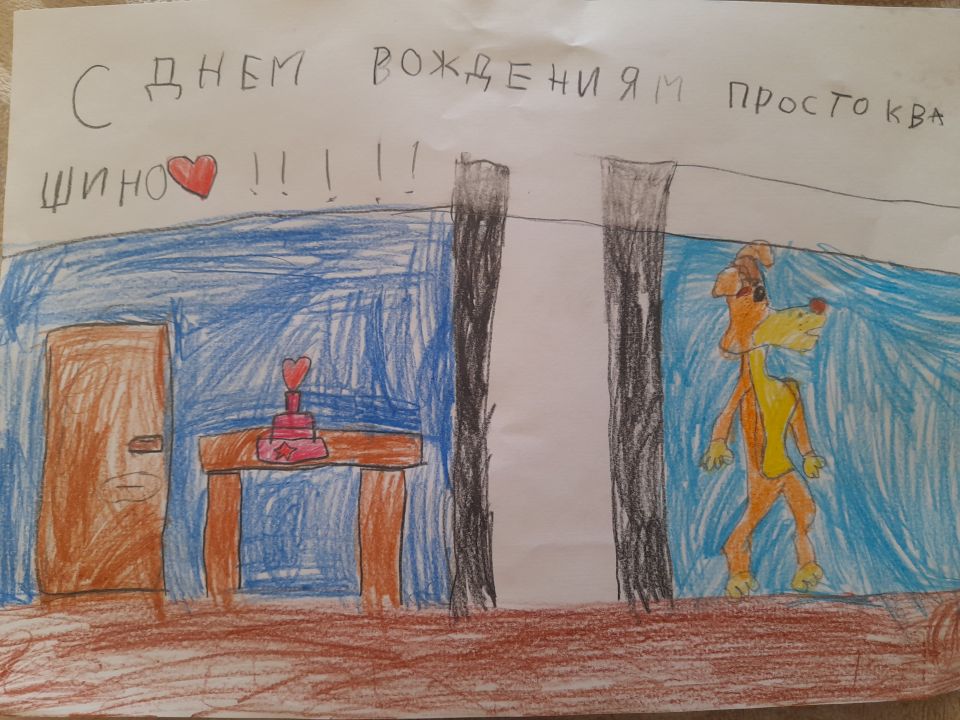 С ДНЕМ ВОЖДЕНИЯМ ПРОСТОКВА
ШИНО❤️!!!!!